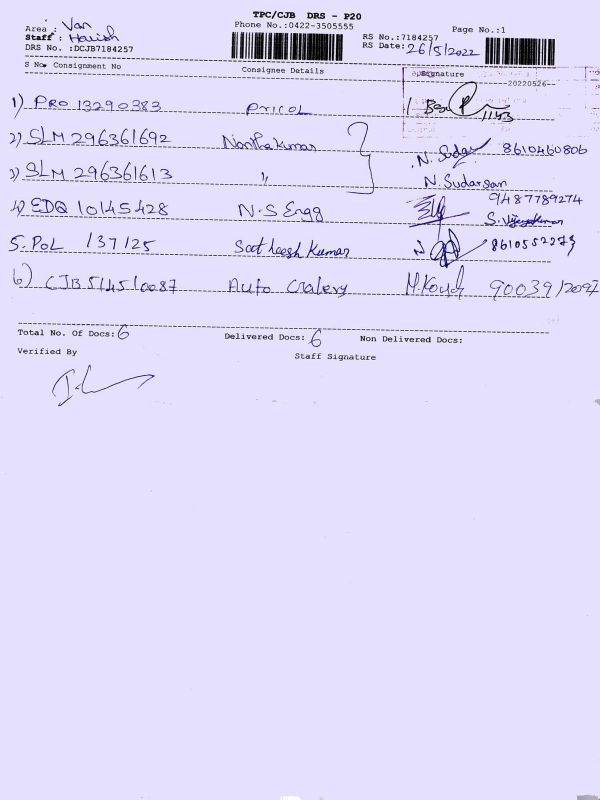 TPC/CJB DRS - P20
Phone No.:0422-3505555
Area : Van
Staff : Harish
DRS No. :DCJB7184257
RS No.:7184257
RS Date: 26/5/2022
Page No.:1
S No Consignment No Consignee Details Signature
20220526
1) PRO 13290383 Pricol 1153
2) SLM 296361692 Nantha Kumar N. Sudar 8610460806
3) SLM 296361613 " N. Sudarsan
9487789274
4) EDQ 10145428 N.S Engg S. Vijayakumar
5. POL 137125 Satheesh Kumar
6) CJB 514510087 Auto
Total No. Of Docs: 6 Delivered Docs: 6 Non Delivered Docs:
Verified By Staff Signature